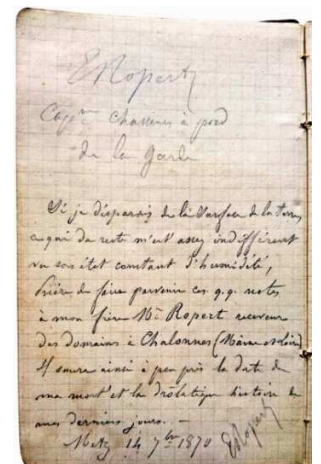 E Ropert
Cap^ne chasseurs à pied
de la garde
Si je disparais de la surface de la terre,
ce qui du reste m'est assez indifférent
vu son état constant d'humidité,
Prière de faire parvenir ces q.q. notes
à mon frère M^r Ropert receveur
des domaines à Chalonnes (Maine et Loire)
Il saura ainsi à peu près la date de
ma mort et la drôlatique histoire de
mes derniers jours. —
Metz 14 7^bre 1870 E Ropert